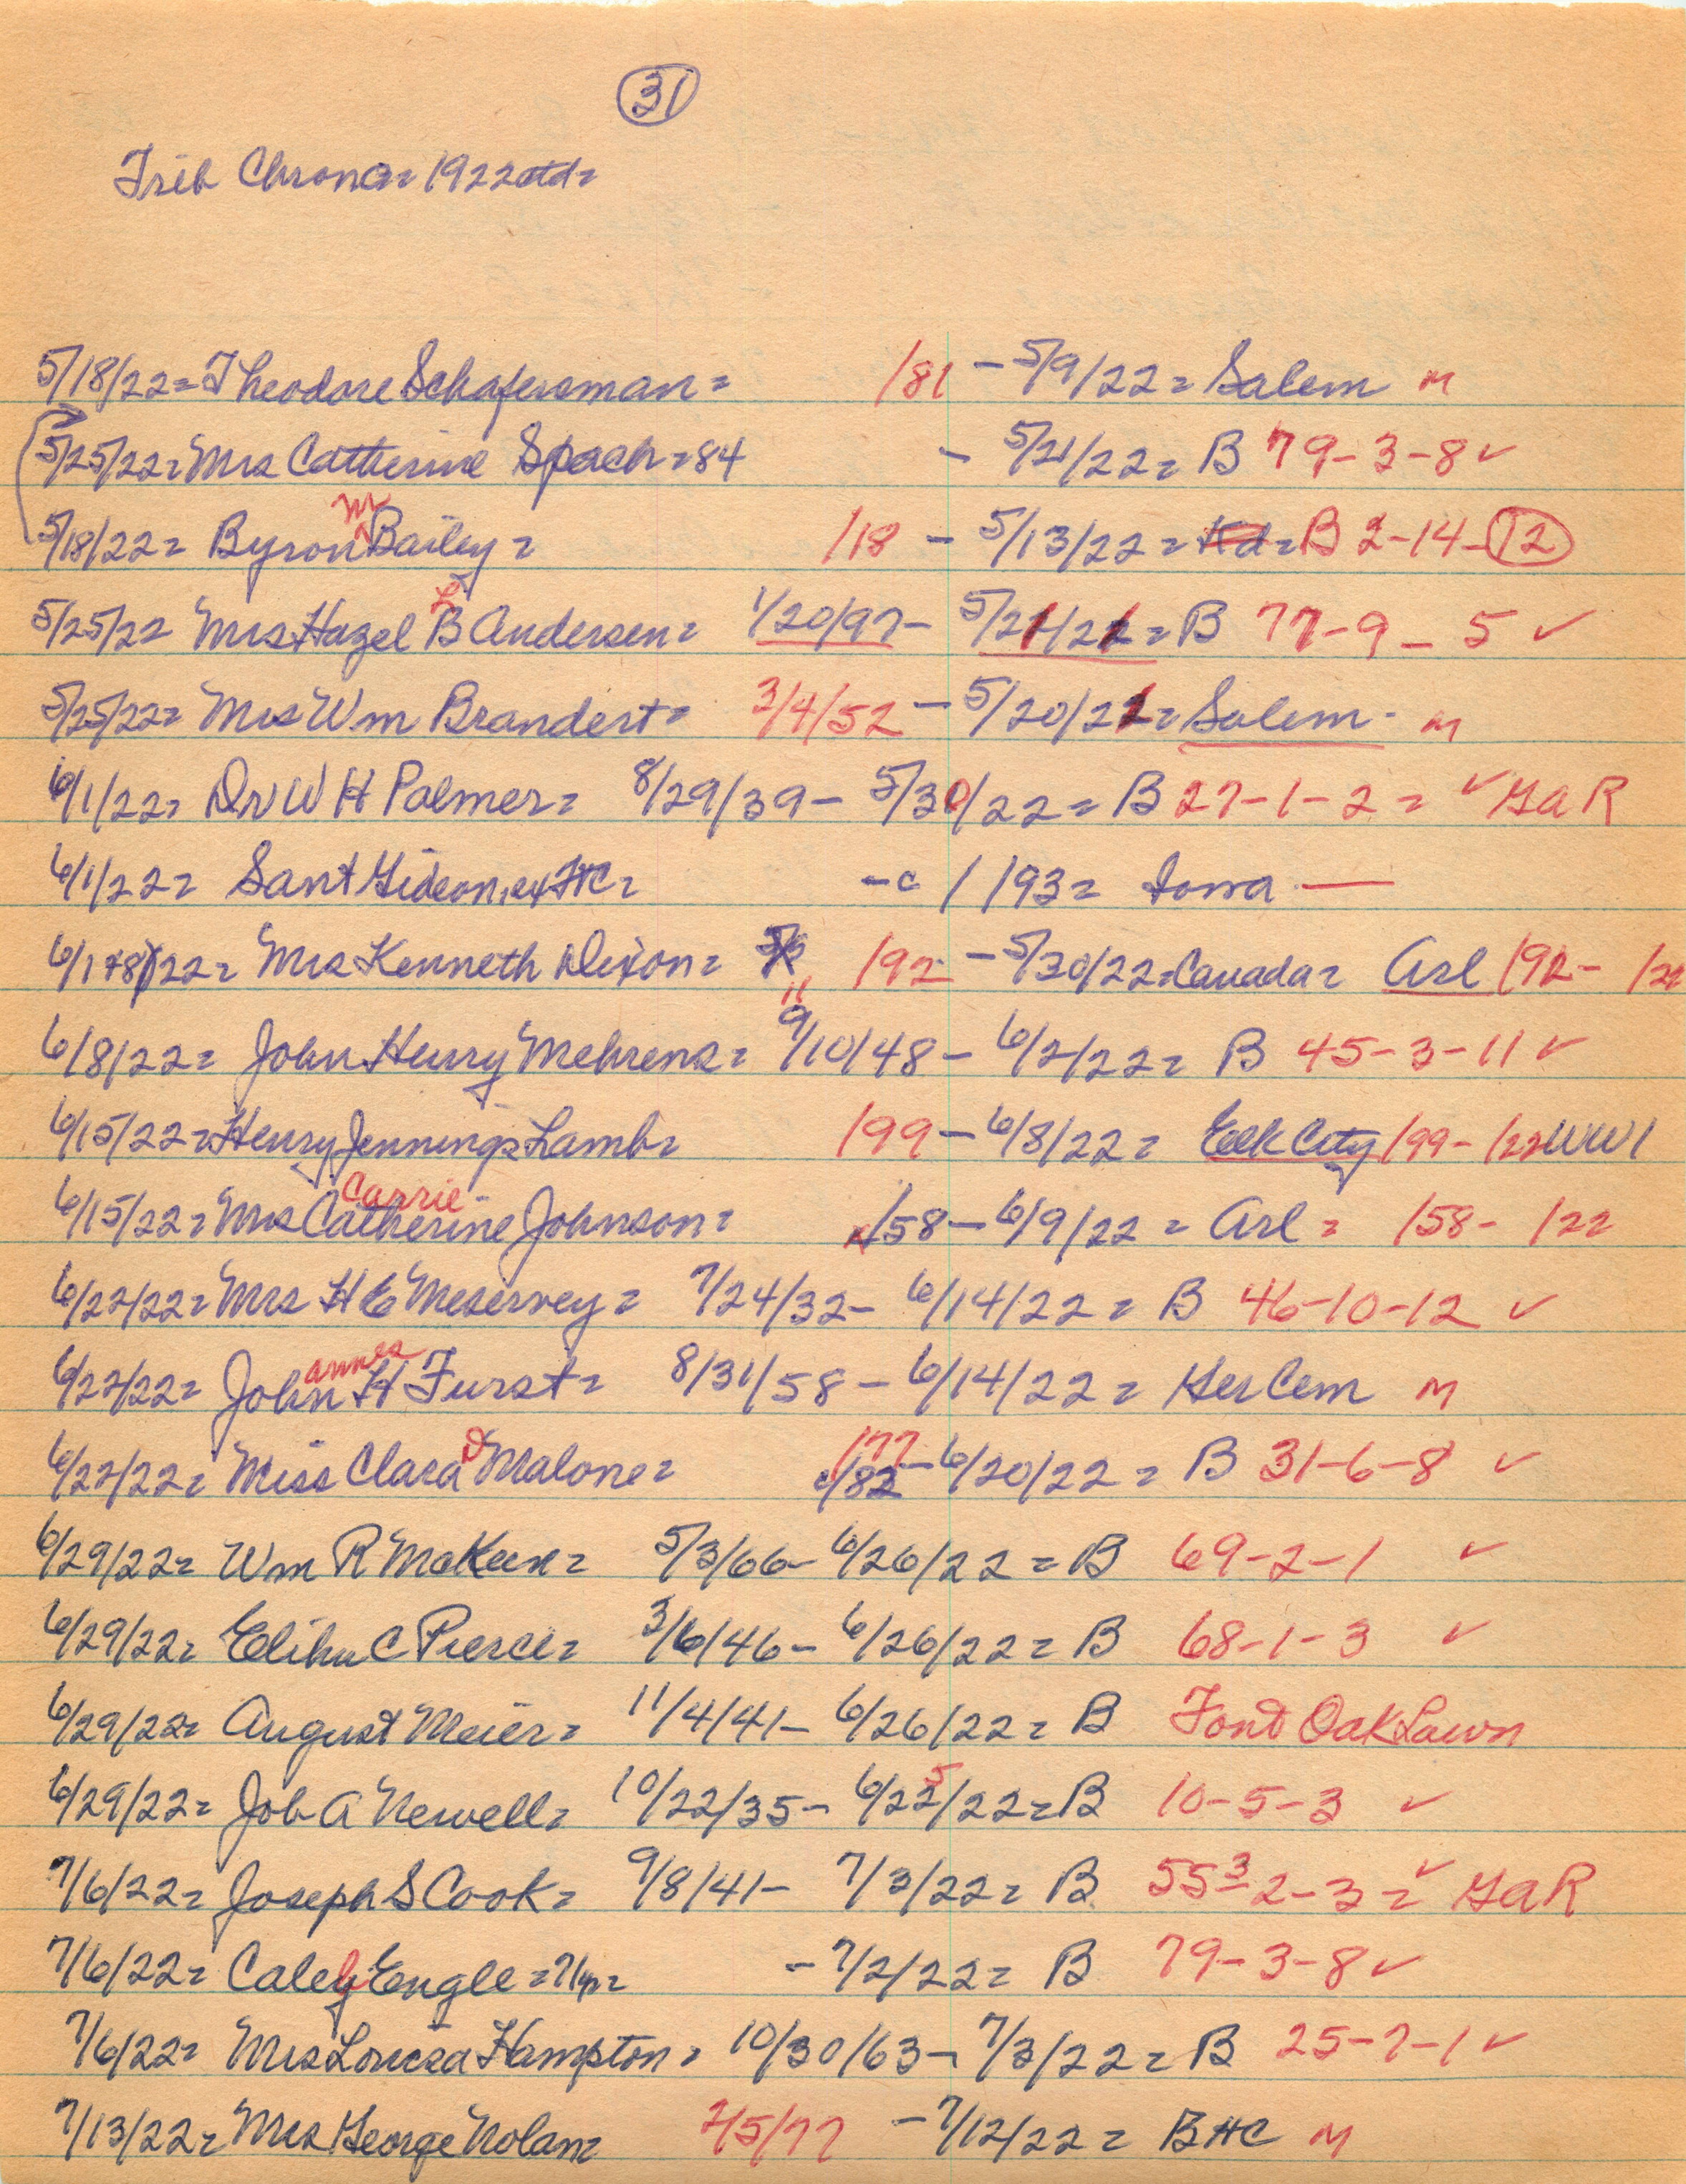 31
Trib Chron = 1922 ctd =
5/18/22 = Theodore Schafersman = /81 - 5/9/22 = Salem M
5/25/22 = Mrs Catherine Spach = 84 - 5/21/22 = B 79-3-8 ✓
5/18/22 = Byron M Bailey = /18 - 5/13/22 = B 2-14-12
5/25/22 Mrs Hazel L B Andersen = 1/20/97 - 5/21/22 = B 77-9-5 ✓
5/25/22 = Mrs Wm Brandert = 3/4/52 - 5/20/21 = Salem - M
6/1/22 = Dr W H Palmer = 8/29/39 - 5/30/22 = B 27-1-2 = ✓ GAR
6/1/22 = Sant Gideon, ex HC = - c / /93 = Iowa —
6/1+8/22 = Mrs Kenneth Dixon = /92 - 5/30/22 = Canada = Arl /92 - /22
6/8/22 = John Henry Mehrens = 9/10/48 - 6/2/22 = B 45-3-11 ✓
6/15/22 = Henry Jennings Lamb = /99 - 6/8/22 = Elk City /99 - /22 WW1
6/15/22 = Mrs Catherine Carrie Johnson = /58 - 6/9/22 = Arl = /58 - /22
6/22/22 = Mrs H E Meservey = 7/24/32 - 6/14/22 = B 46-10-12 ✓
6/22/22 = John annes H Furst = 8/31/58 - 6/14/22 = Ger Cem M
6/22/22 = Miss Clara D Malone = /77 c/82 - 6/20/22 = B 31-6-8 ✓
6/29/22 = Wm R McKeen = 5/3/66 - 6/26/22 = B 69-2-1 ✓
6/29/22 = Elihu C Pierce = 3/6/46 - 6/26/22 = B 68-1-3 ✓
6/29/22 = August Meier = 11/4/41 - 6/26/22 = B Font Oak Lawn
6/29/22 = Job A Newell = 10/22/35 - 6/22 5/22 = B 10-5-3 ✓
7/6/22 = Joseph S Cook = 9/8/41 - 7/3/22 = B 55-3 2-3 = ✓ GAR
7/6/22 = Caleb Engle = 71yr = - 7/2/22 = B 79-3-8 ✓
7/6/22 = Mrs Louisa Hampton = 10/30/63 - 7/3/22 = B 25-7-1 ✓
7/13/22 = Mrs George Nolan = 2/5/77 - 7/12/22 = BHC M